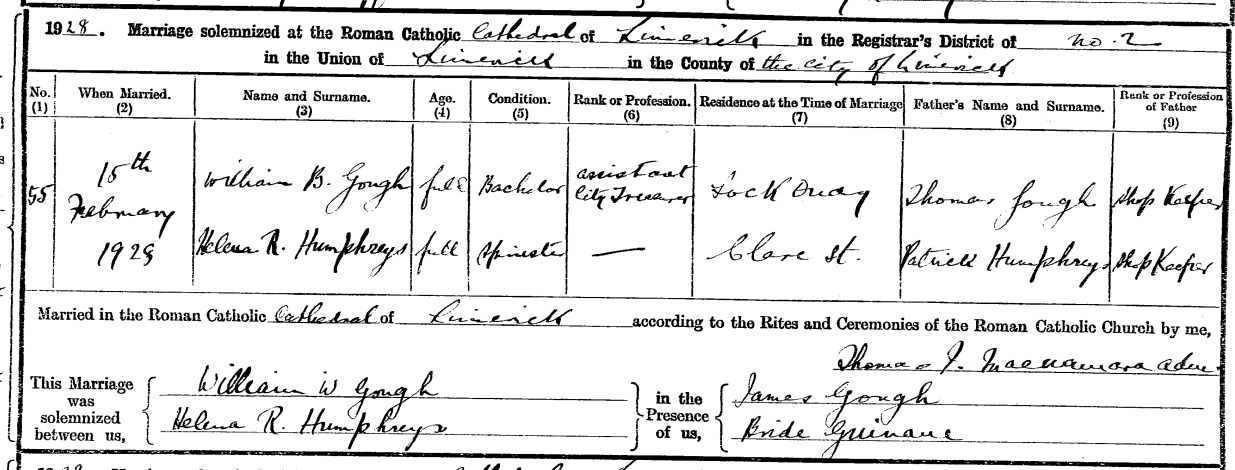 1928. Marriage solemnized at the Roman Catholic Cathedral of Limerick in the Registrar's District of No. 2
in the Union of Limerick in the County of the City of Limerick
No. (1) When Married. (2) Name and Surname. (3) Age. (4) Condition. (5) Rank or Profession. (6) Residence at the Time of Marriage (7) Father's Name and Surname. (8) Rank or Profession of Father (9)
55 15th February 1928 William B. Gough full Bachelor assistant City Treasurer Lock Quay Thomas Gough Shop Keeper
Helena R. Humphreys full Spinster — Clare St. Patrick Humphreys Shop Keeper
Married in the Roman Catholic Cathedral of Limerick according to the Rites and Ceremonies of the Roman Catholic Church by me,
Thomas J. Macnamara adm.
This Marriage was solemnized between us, William W Gough in the Presence of us, James Gough
Helena R. Humphreys Bride Guinane